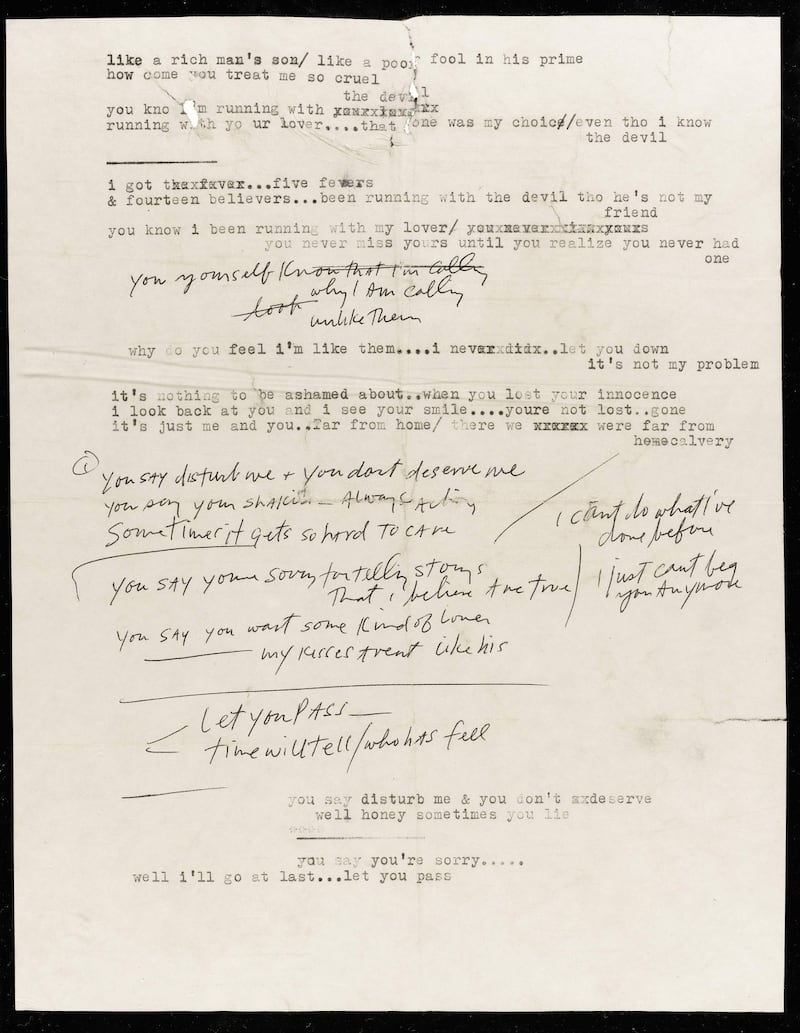 like a rich man's son/ like a poor fool in his prime
how come you treat me so cruel
the devil
you kno i'm running with
running with yo ur lover....that one was my choice/even tho i know
the devil
i got thexfever...five fevers
& fourteen believers...been running with the devil tho he's not my
friend
you know i been running with my lover/
you never miss yours until you realize you never had
one
you yourself know that I'm calling
why I Am calling
look
unlike Them
why do you feel i'm like them....i never didx..let you down
it's not my problem
it's nothing to be ashamed about..when you lost your innocence
i look back at you and i see your smile....youre not lost..gone
it's just me and you..far from home/ there we were far from
calvery
1
you SAY disturb me + you don't deserve me
you say your shakin – Always Acting
Sometimes it gets so hard to care
I can't do what I've
done before
you SAY youre sorry for telling storys
That i believe Are True
I just cant beg
you Anymore
you SAY you want some kind of Lover
my kisses Arent like his
Let you PASS —
time will tell/who hAs fell
you say disturb me & you don't xxdeserve
well honey sometimes you lie
you say you're sorry.....
well i'll go at last...let you pass